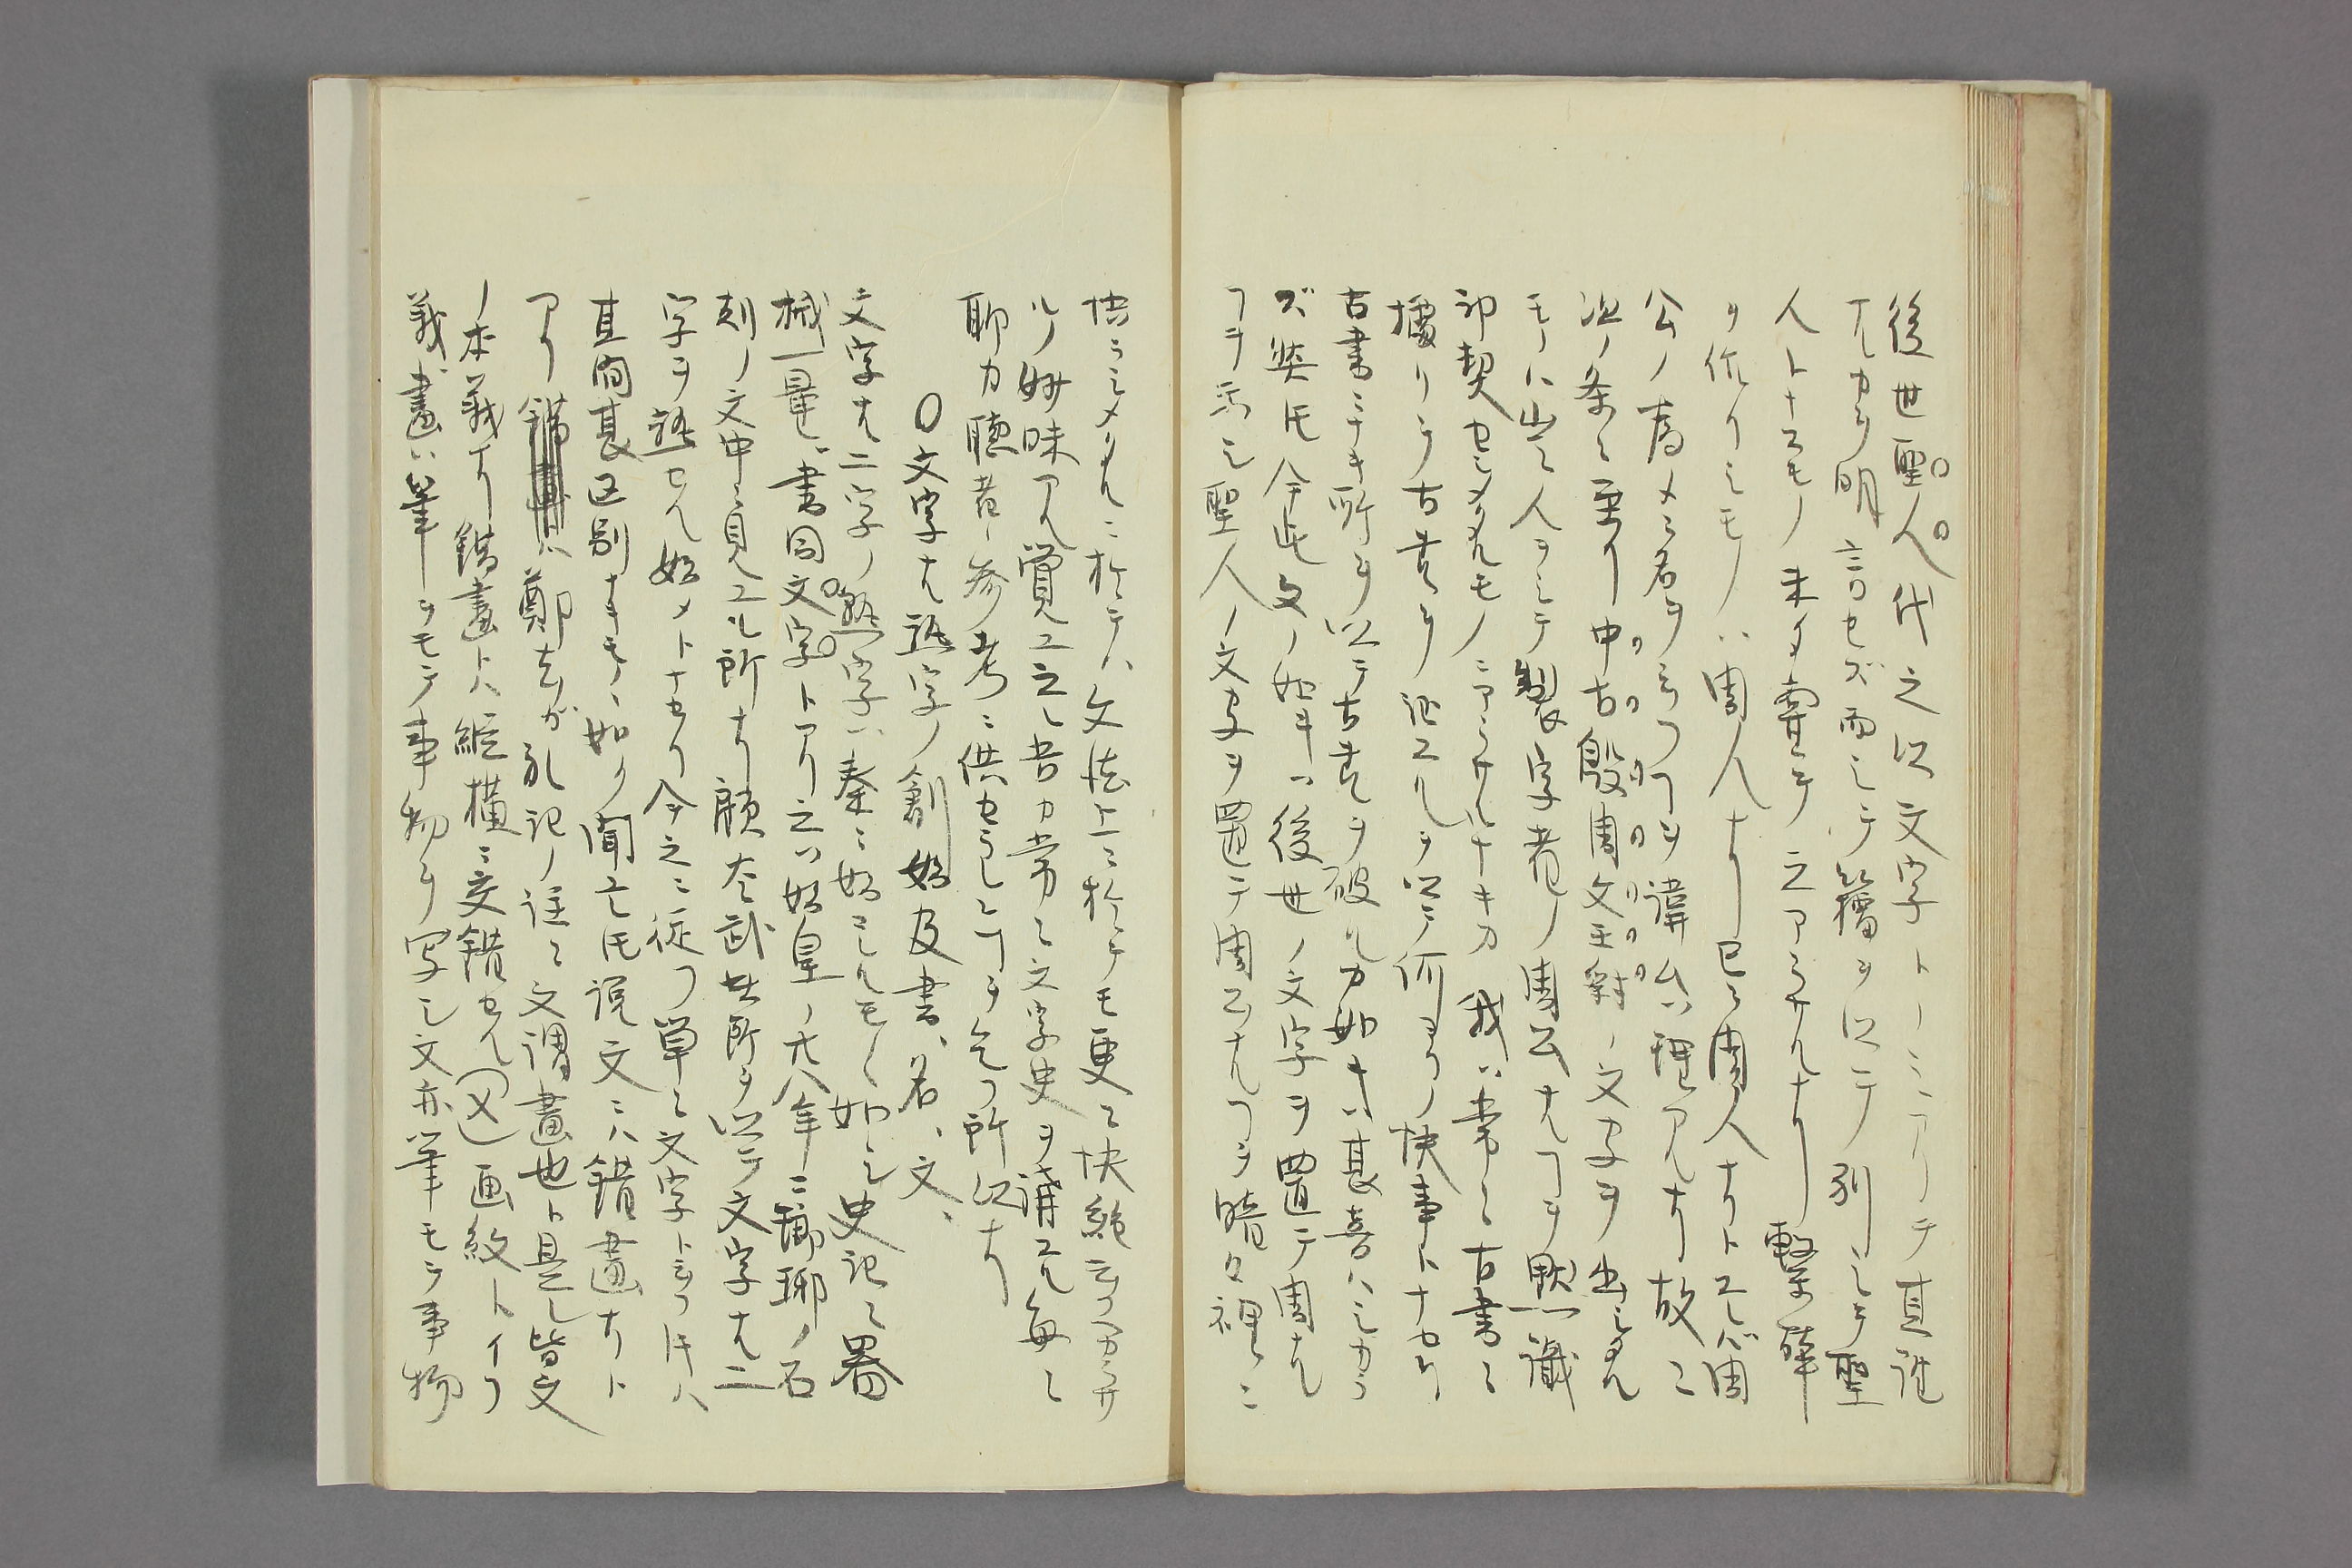 後世聖人代之以文字トノミアリテ其誰
タルカヲ明言セズ而シテ籀ヲ以テ別ニシテ聖
人トナスモノ未ダ嘗テ之アラザルナリ繋辞
ヲ作リシモノハ周人ナリ已ニ周人ナリトエバ周
公ノ為メニ名ヲ云フヿヲ諱ムハ理アルナリ故ニ
次ノ条ニ至リ中古殷周文王紂ノ文字ヲ出シタル
モノハ出テ人ヲシテ製字者ノ周公タルヿヲ黙識
印契セシメタルモノニアラザルナキカ我ハ常ニ古書ニ
據リテ古書ヲ証エルヲ以テ何ヨリノ快事トナセリ
古書ニナキ所ヲ以テ古書ヲ破ルカ如キハ甚喜ハシカラ
ズ然氏今此文ノ如キハ後世ノ文字ヲ置テ周ナル
ヿヲ示シ聖人ノ文字ヲ置テ周公ナルヿヲ暗々裡ニ
悟ラシメタルニ於テハ文法上ニ於テモ更ニ快絶云フベカラザ
ルノ妙味アルヲ覚エ之レ吾カ常ニ文字史ヲ講エル毎ニ
聊カ聴者ノ参考ニ供セラレンヿヲ乞フ所以ナリ
〇文字ナル語字ノ創始及書、名、文、
文字ナル二字ノ熟字ハ秦ニ始マレルモノヽ如シ史記ニ器
械一量、書同文字トアリ之ハ始皇ノ廿八年ニ瑯琊ノ石
刻ノ文中ニ見エル所ナリ顧太武此所ヲ以テ文字ナル二
字ヲ語セル始メトナセリ今之ニ従フ単ニ文字ト云フ氏ハ
其間甚区別ナキモノヽ如ク聞エ氏説文ニハ錯畫ナリト
アリ錯畫ハ鄭玄ガ礼記ノ註ニ文謂畫也ト是レ皆文
ノ本義ナリ錯畫トハ縦横ニ交錯セル(㐅)画紋トイフ
義畫ハ筆ヲモテ事物ヲ写シ文亦筆モテ事物